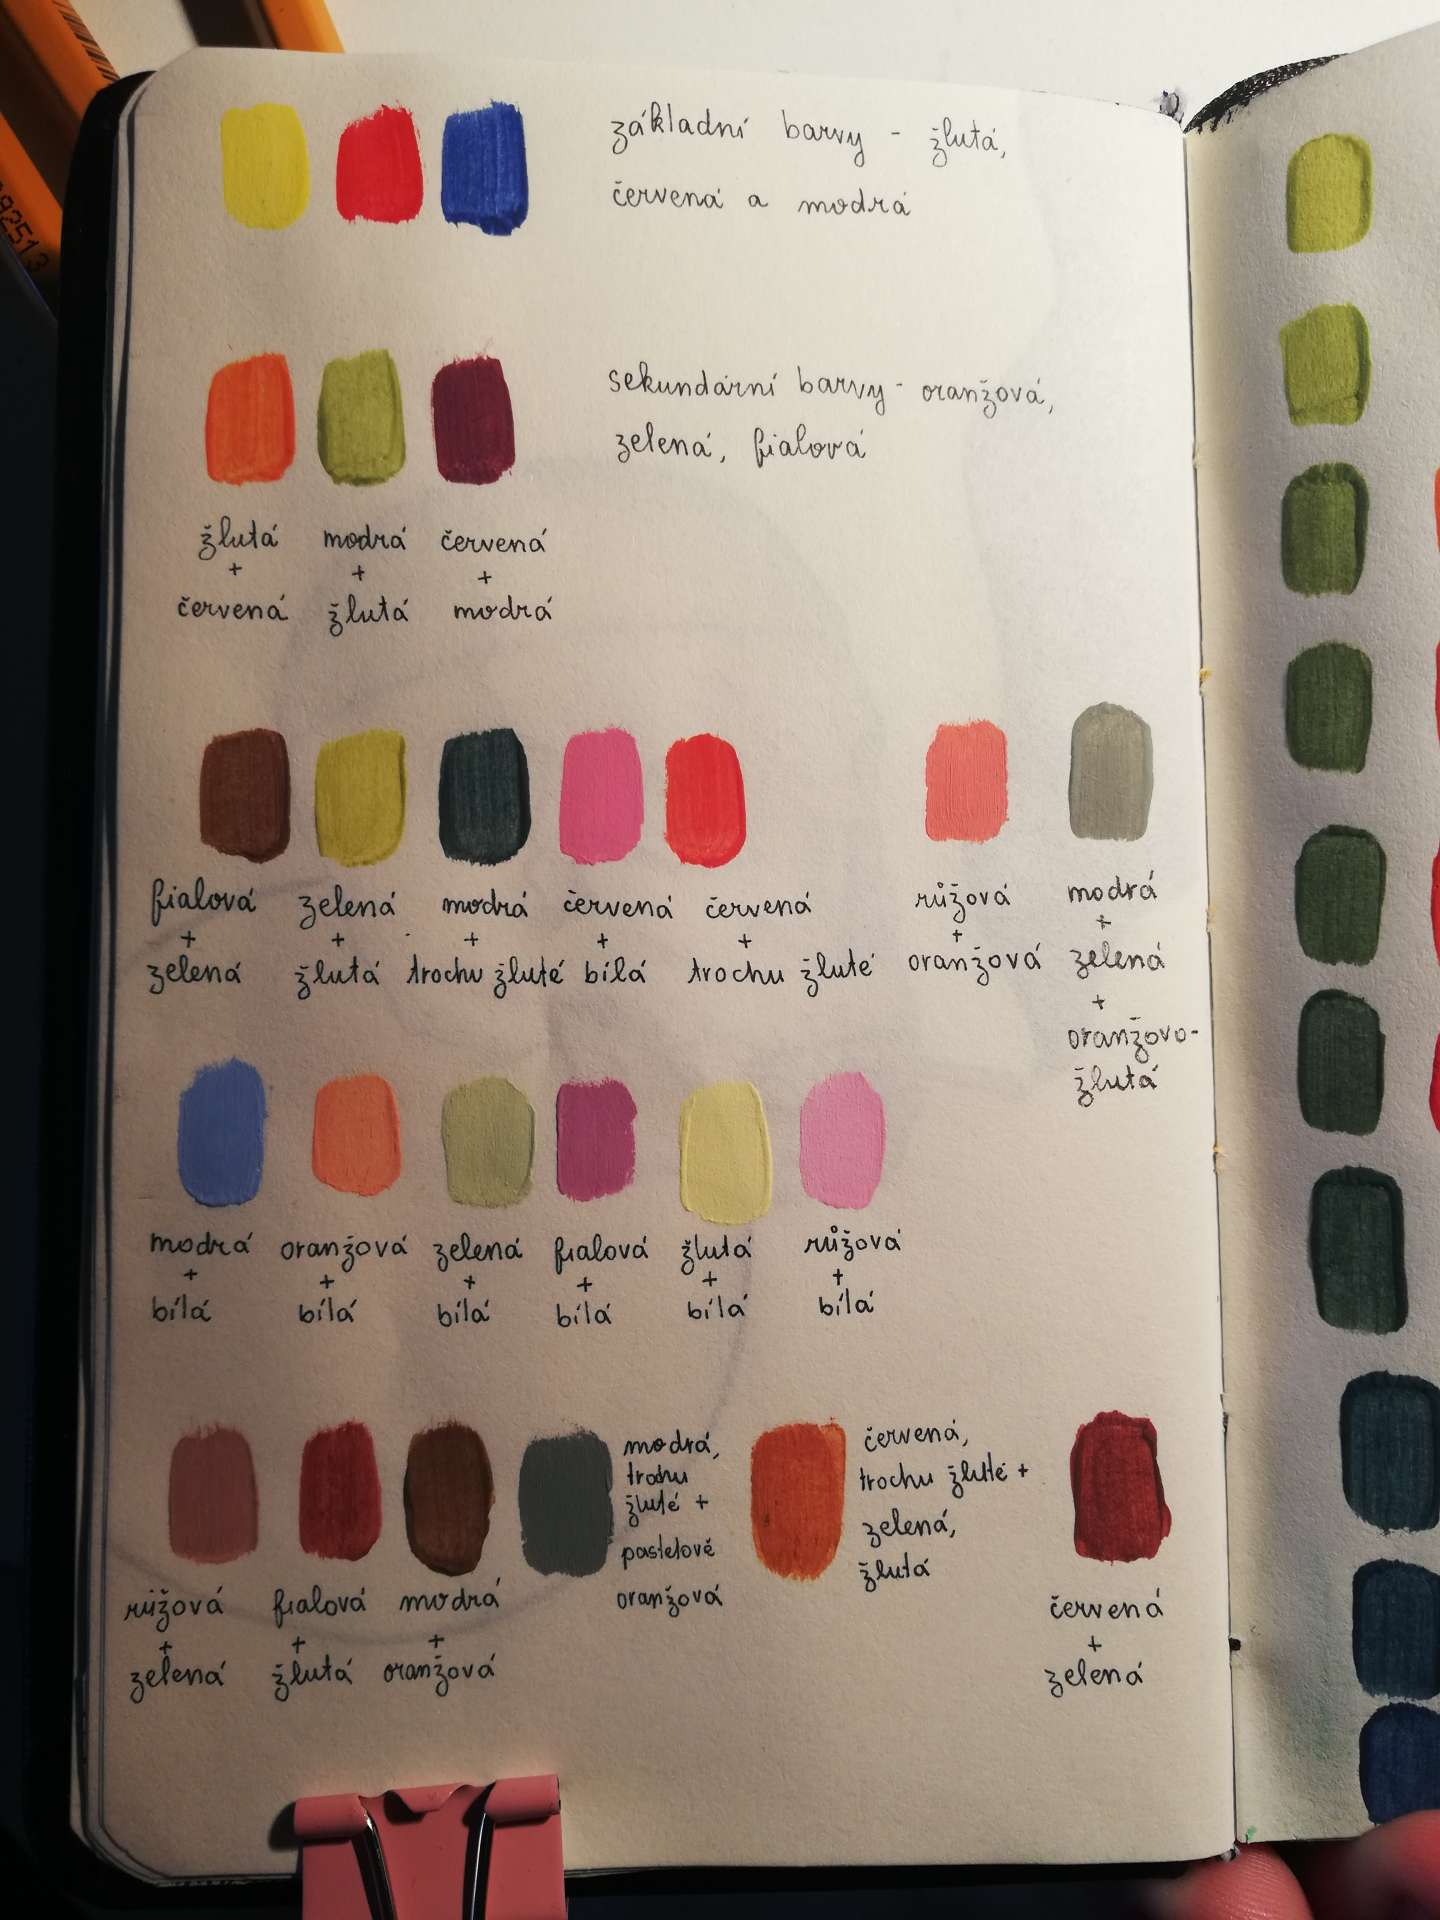 základní barvy - žlutá,
červená a modrá
sekundární barvy - oranžová,
zelená, fialová
žlutá
+
červená
modrá
+
žlutá
červená
+
modrá
fialová
+
zelená
zelená
+
žlutá
modrá
+
trochu žluté
červená
+
bílá
červená
+
trochu žluté
růžová
+
oranžová
modrá
+
zelená
+
oranžovo-
žlutá
modrá
+
bílá
oranžová
+
bílá
zelená
+
bílá
fialová
+
bílá
žlutá
+
bílá
růžová
+
bílá
růžová
+
zelená
fialová
+
žlutá
modrá
+
oranžová
modrá,
trochu
žluté +
pastelově
oranžová
červená,
trochu žluté +
zelená,
žlutá
červená
+
zelená